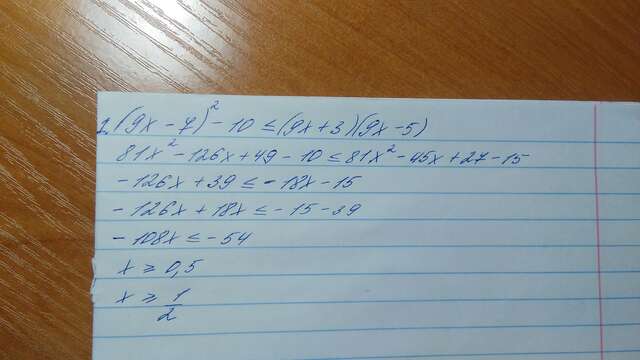 1. (9x - 7)² - 10 ≤ (9x + 3)(9x - 5)
81x² - 126x + 49 - 10 ≤ 81x² - 45x + 27 - 15
- 126x + 39 ≤ - 18x - 15
- 126x + 18x ≤ - 15 - 39
- 108x ≤ - 54
x ≥ 0,5
x ≥ 1/2